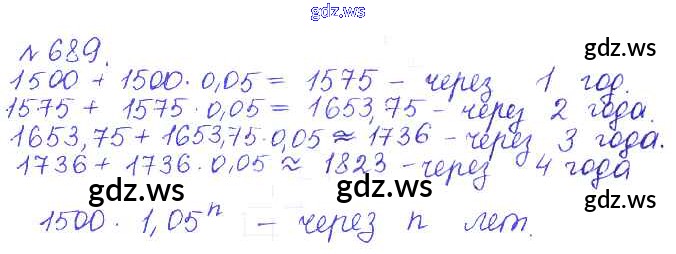 gdz.ws
№ 689.
gdz.ws
1500 + 1500 · 0,05 = 1575 - через 1 год.
1575 + 1575 · 0,05 = 1653,75 - через 2 года.
gdz.ws
1653,75 + 1653,75 · 0,05 ≈ 1736 - через 3 года.
1736 + 1736 · 0,05 ≈ 1823 - через 4 года
gdz.ws gdz.ws
1500 · 1,05ⁿ - через n лет.
gdz.ws